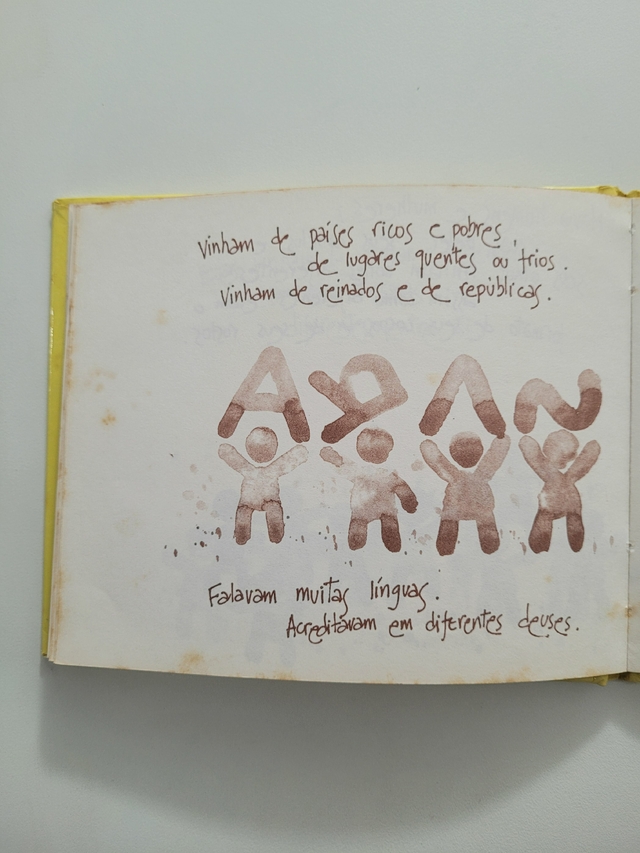 Vinham de países ricos e pobres,
de lugares quentes ou frios.
Vinham de reinados e de repúblicas.
A Λ
Falavam muitas línguas.
Acreditavam em diferentes deuses.